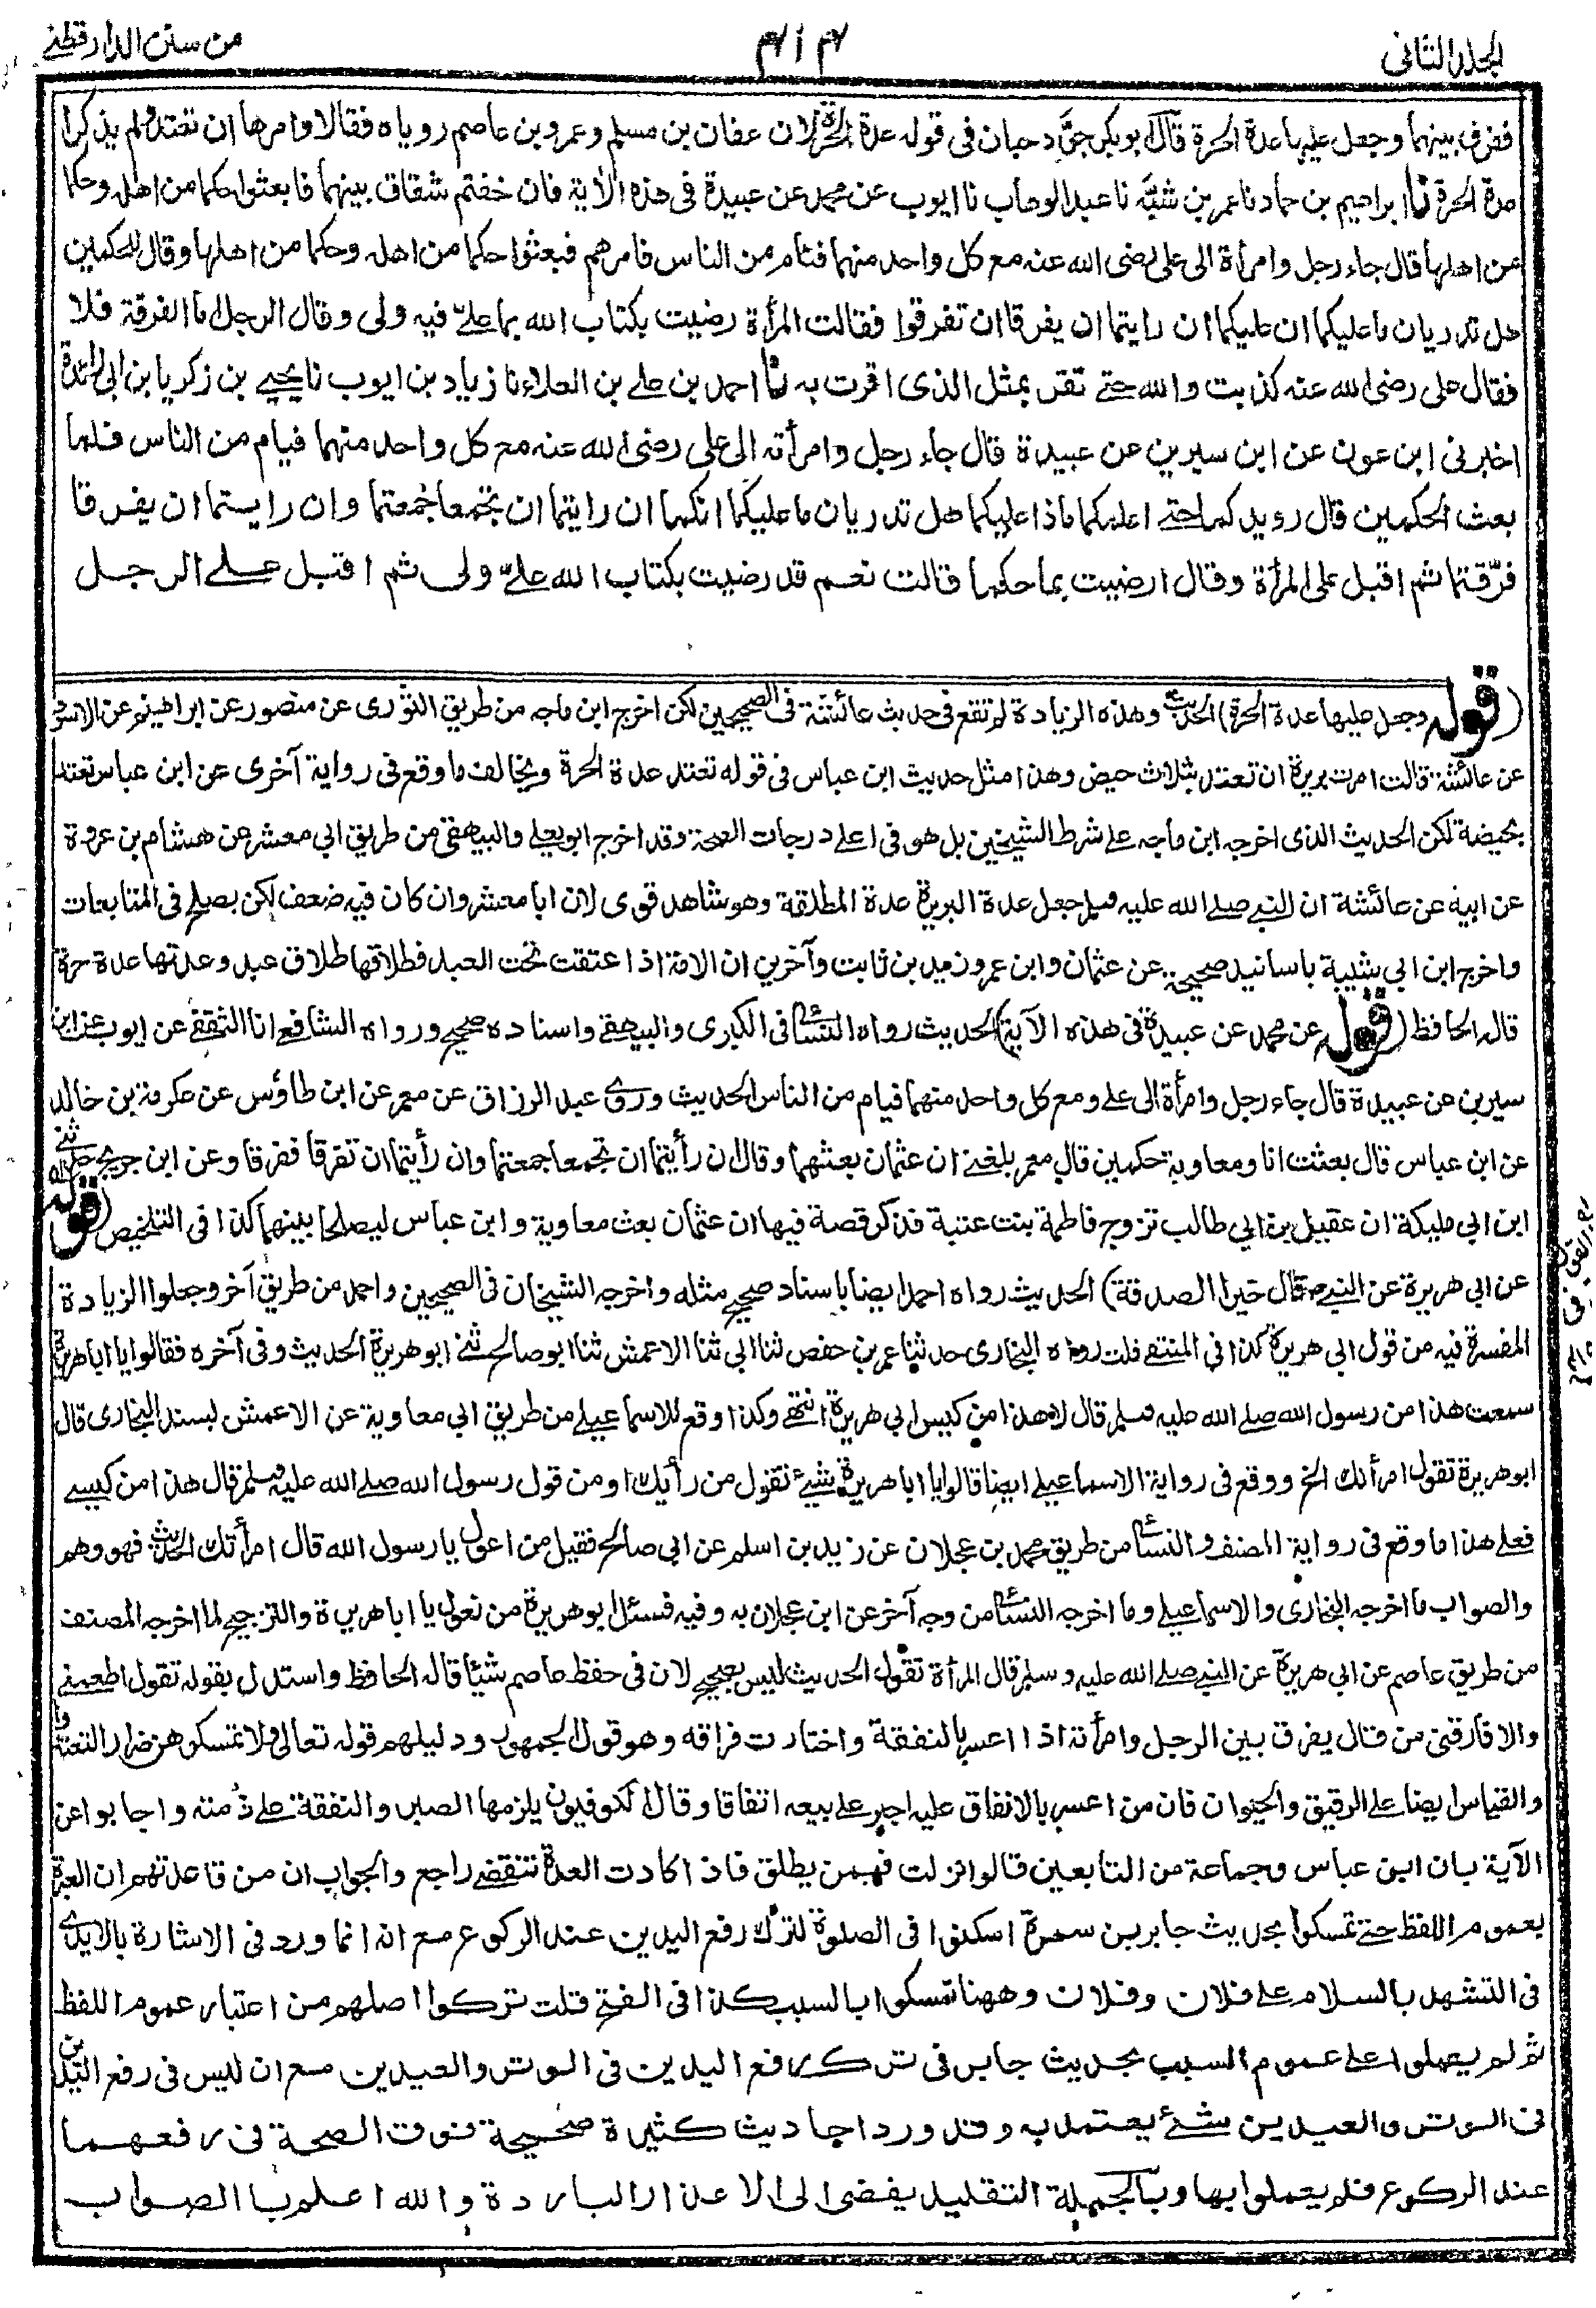 المجلد الثانى
٤١٤
من سنن الدارقطنے
ففرق بينهما وجعل عليها عدة الحرة قال ابو بكر جوّد حبان فى قوله عدة الحرة لان عفان بن مسلم وعمرو بن عاصم روياه فقالا وامرها ان تعتد ولم يذكرا
عدة الحرة نا ابراهيم بن حماد نا عمر بن شبّة نا عبد الوهاب نا ايوب عن محمد عن عبيدة فى هذه الاية فان خفتم شقاق بينهما فابعثوا حكما من اهله وحكما
من اهلها قال جاء رجل وامرأة الى على رضى الله عنه مع كل واحد منهما فئام من الناس فامرهم فبعثوا حكما من اهله وحكما من اهلها وقال للحكمين
هل تدريان ما عليكما ان عليكما ان رايتما ان يفرقا ان تفرقوا فقالت المرأة رضيت بكتاب الله بما علىّ فيه ولى وقال الرجل اما الفرقة فلا
فقال على رضى الله عنه كذبت والله حتے تقر بمثل الذى اقرت به نا احمد بن علے بن العلاء نا زياد بن ايوب نا يحيے بن زكريا بن ابى زائدة
اخبرنى ابن عون عن ابن سيرين عن عبيدة قال جاء رجل وامرأته الى على رضى الله عنه مع كل واحد منهما فيام من الناس فلما
بعث الحكمين قال رويدكما حتے اعلمكما ماذا عليكما هل تدريان ما عليكما انكما ان رايتما ان تجمعا جمعتما وان رايتما ان يفرقا
فرّقتما ثم اقبل على المرأة وقال ارضيت بما حكما قالت نعم قد رضيت بكتاب الله علىّ ولى ثم اقبل علے الرجل
(قوله وجعل عليها عدة الحرة) الحديث وهذه الزيادة لم تقع فى حديث عائشة فى الصحيحين لكن اخرج ابن ماجه من طريق الثورى عن منصور عن ابراهيم عن الاسود
عن عائشة قالت امرت بريرة ان تعتد بثلاث حيض وهذا مثل حديث ابن عباس فى قوله تعتد عدة الحرة ويخالف ما وقع فى رواية آخرى عن ابن عباس تعتد
بحيضة لكن الحديث الذى اخرجه ابن ماجه علے شرط الشيخين بل هو فى اعلے درجات الصحة وقد اخرج ابو يعلے والبيهقى من طريق ابي معشر عن هشام بن عروة
عن ابيه عن عائشة ان النبے صلے الله عليه وسلم جعل عدة البريرة عدة المطلقة وهو شاهد قوى لان ابا معشر وان كان فيه ضعف لكن يصلح فى المتابعات
واخرج ابن ابي شيبة باسانيد صحيحة عن عثمان وابن عمر وزيد بن ثابت وآخرين ان الامة اذا اعتقت تحت العبد فطلاقها طلاق عبد وعدتها عدة حرة
قاله الحافظ (قوله عن محمد عن عبيدة فى هذه الآية) الحديث رواه النسائى فى الكبرى والبيهقے واسناده صحيح ورواه الشافعے انا الثقفے عن ايوب عن ابن
سيرين عن عبيدة قال جاء رجل وامرأة الى على ومع كل واحد منهما فيام من الناس الحديث وروى عبد الرزاق عن معمر عن ابن طاؤس عن عكرمة بن خالد
عن ابن عباس قال بعثت انا ومعاوية حكمين قال معمر بلغنے ان عثمان بعثهما وقال ان رأيتما ان تجمعا جمعتما وان رأيتما ان تفرقا ففرقا وعن ابن جريج حدثنے
ابن ابي مليكة ان عقيل بن ابي طالب تزوج فاطمة بنت عتبة فذكر قصة فيها ان عثمان بعث معاوية وابن عباس ليصلحا بينهما كذا فى التلخيص (قوله
عن ابي هريرة عن النبے صـ قال خير الصدقة) الحديث رواه احمد ايضا باسناد صحيح مثله واخرجه الشيخان فى الصحيحين واحمد من طريق آخر وجعلوا الزيادة
المفسرة فيه من قول ابي هريرة كذا فى المنتقے قلت رواه البخارى حدثنا عمر بن حفص ثنا ابي ثنا الاعمش ثنا ابو صالح ثنے ابو هريرة الحديث وفى آخره فقالوا يا ابا هريرة
سمعت هذا من رسول الله صلے الله عليه وسلم قال لا هذا من كيس ابي هريرة انتهے وكذا وقع للاسماعيلے من طريق ابي معاوية عن الاعمش بسند البخارى قال
ابو هريرة تقول امرأتك الخ ووقع فى رواية الاسماعيلے ايضا قالوا يا ابا هريرة شيئ تقول من رأيك او من قول رسول الله صلے الله عليه وسلم قال هذا من كيسے
فعلے هذا ما وقع فى رواية المصنف والنسائى من طريق محمد بن عجلان عن زيد بن اسلم عن ابي صالح فقيل من اعول يا رسول الله قال امرأتك الحديث فهو وهم
والصواب ما اخرجه البخارى والاسماعيلے وما اخرجه النسائى من وجه آخر عن ابن عجلان به وفيه فسئل ابو هريرة من تعول يا ابا هريرة والترجيح لما اخرجه المصنف
من طريق عاصم عن ابي هريرة عن النبے صلے الله عليه وسلم قال المرأة تقول الحديث ليس بصحيح لان فى حفظ عاصم شيئا قاله الحافظ واستدل بقوله تقول اطعمنے
والا فارقنى من قال يفرق بين الرجل وامرأته اذا اعسر بالنفقة واختارت فراقه وهو قول الجمهور ودليلهم قوله تعالى ولا تمسكوهن ضرارا لتعتدوا
والقياس ايضا على الرقيق والحيوان فان من اعسر بالانفاق عليه اجبر علے بيعه اتفاقا وقال الكوفيون يلزمها الصبر والنفقة علے ذمته واجابوا عن
الآية بان ابن عباس وجماعة من التابعين قالوا نزلت فيمن يطلق فاذا كادت العدة تنقضے راجع والجواب ان من قاعدتهم ان العبرة
بعموم اللفظ حتے تمسكوا بحديث جابر بن سمرة اسكنوا فى الصلوة لترك رفع اليدين عند الركوع مع انه انما ورد فى الاشارة بالايدے
فى التشهد بالسلام علے فلان وفلان وههنا تمسكوا بالسبب كذا فى الفتح قلت تركوا اصلهم من اعتبار عموم اللفظ
ثم لم يعملوا علے عموم السبب بحديث جابر فى ترك رفع اليدين فى الوتر والعيدين مع ان ليس فى رفع اليدين
فى الوتر والعيدين شئ يعتمد به وقد ورد احاديث كثيرة صحيحة فوق الصحة فى رفعهما
عند الركوع فلم يعملوا بها وبالجملة التقليد يفضى الى الاعذار الباردة والله اعلم بالصواب